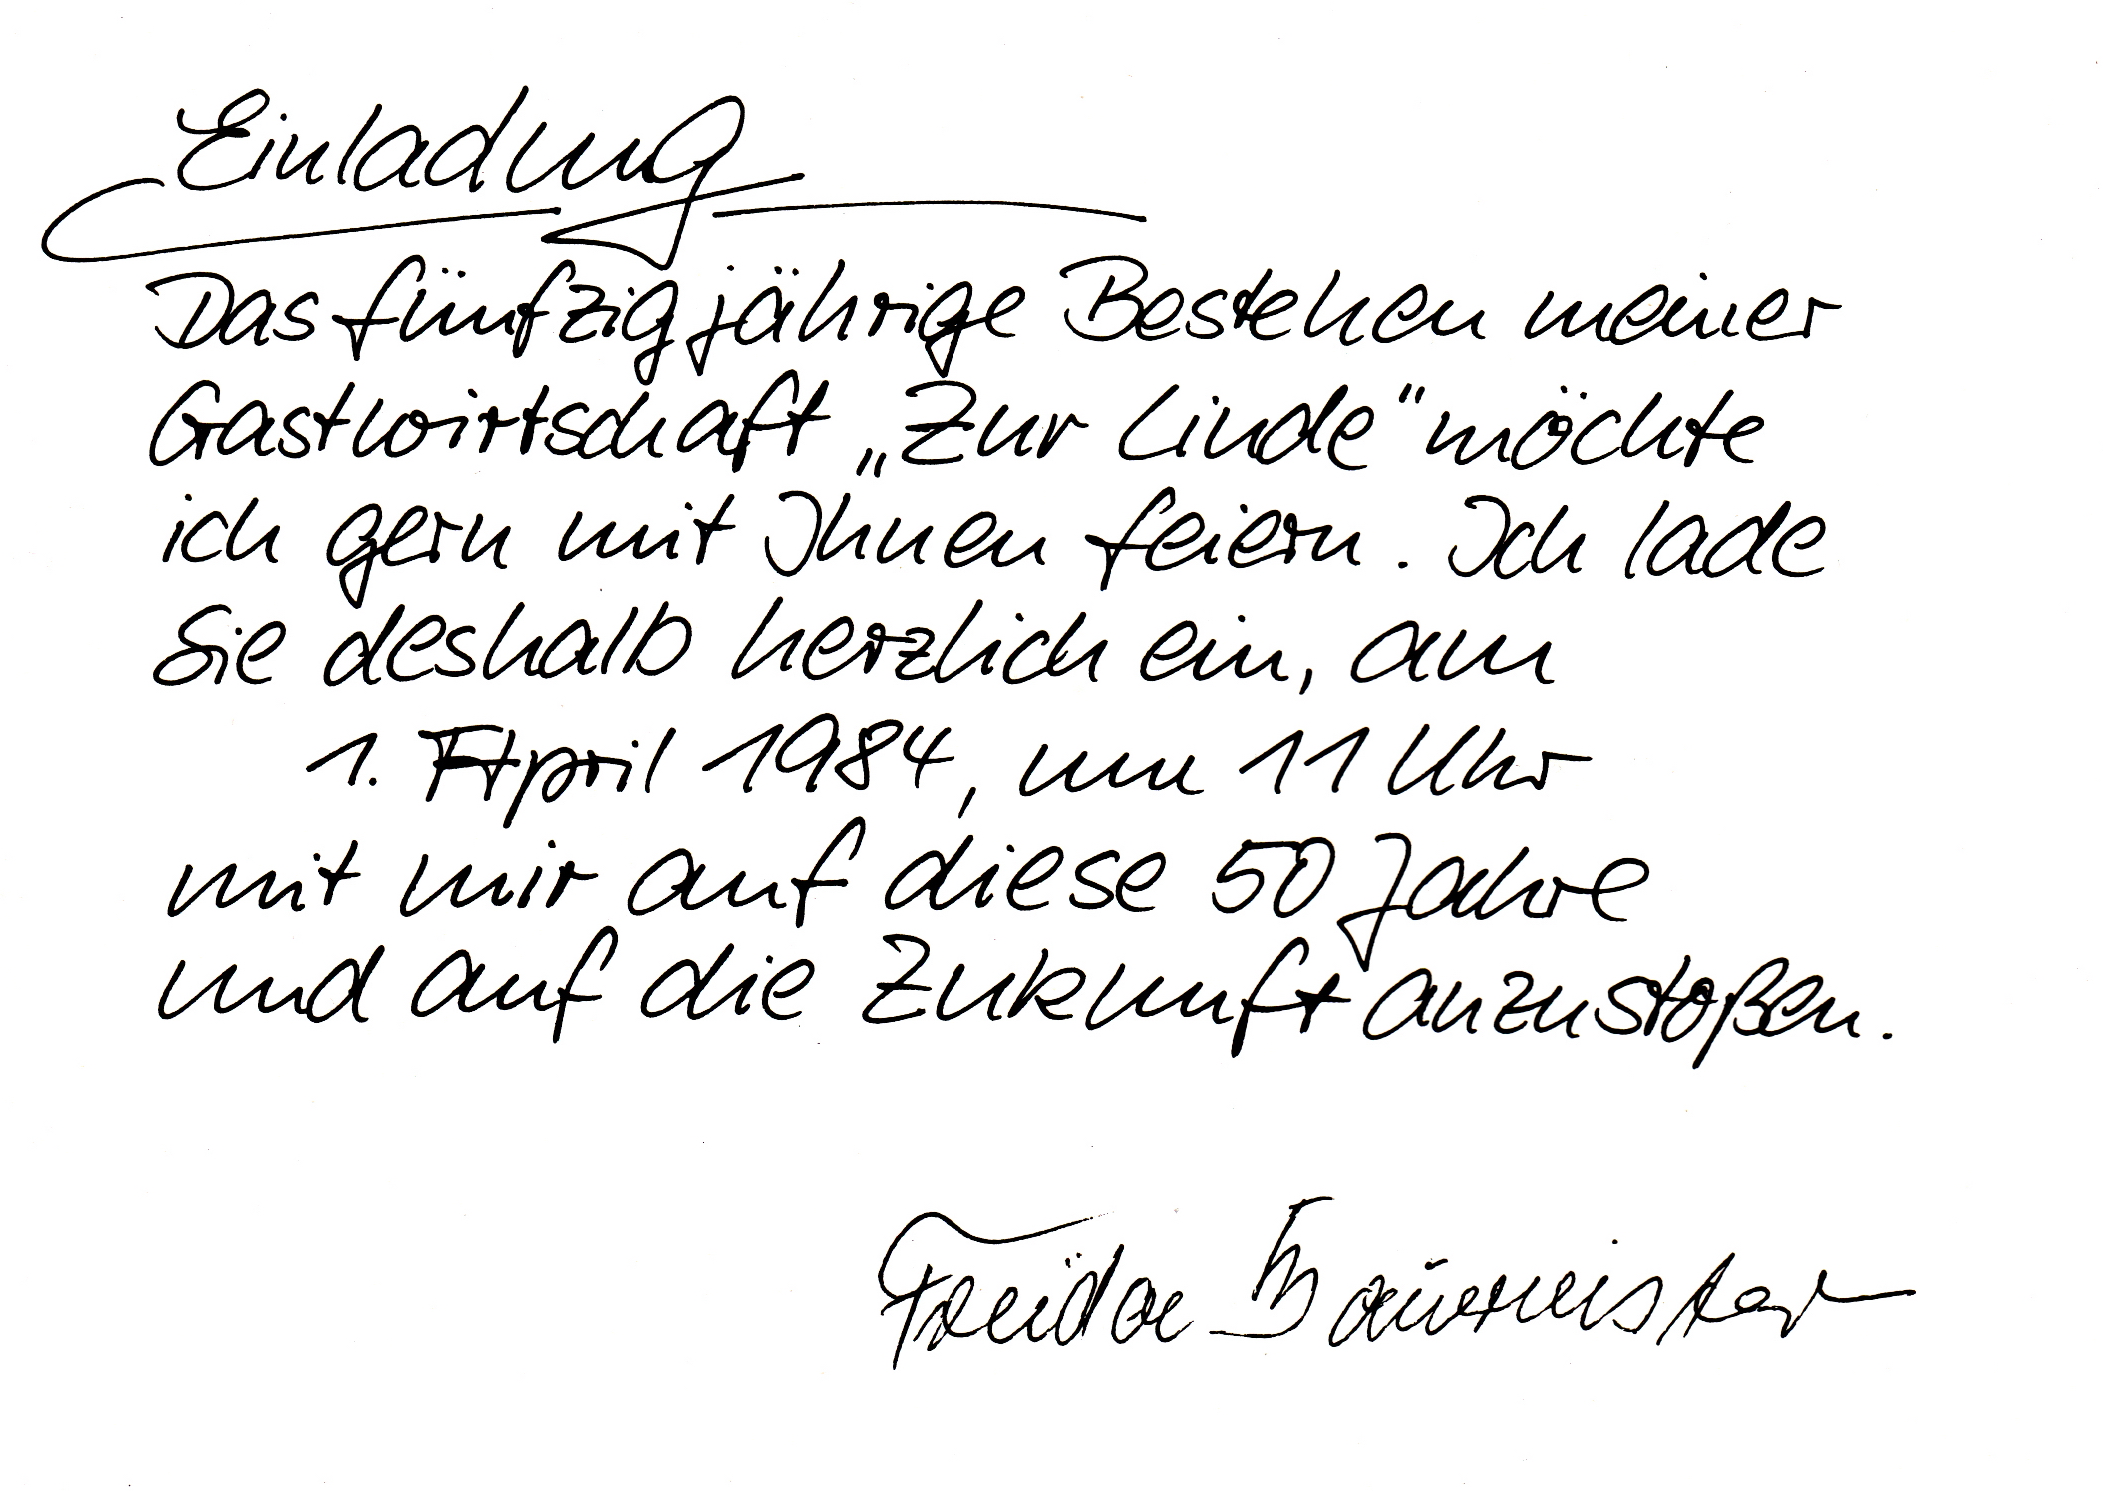 Einladung
Das fünfzigjährige Bestehen meiner
Gastwirtschaft „Zur Linde“ möchte
ich gern mit Ihnen feiern. Ich lade
Sie deshalb herzlich ein, am
1. April 1984, um 11 Uhr
mit mir auf diese 50 Jahre
und auf die Zukunft anzustoßen.
Frieda Baumeister